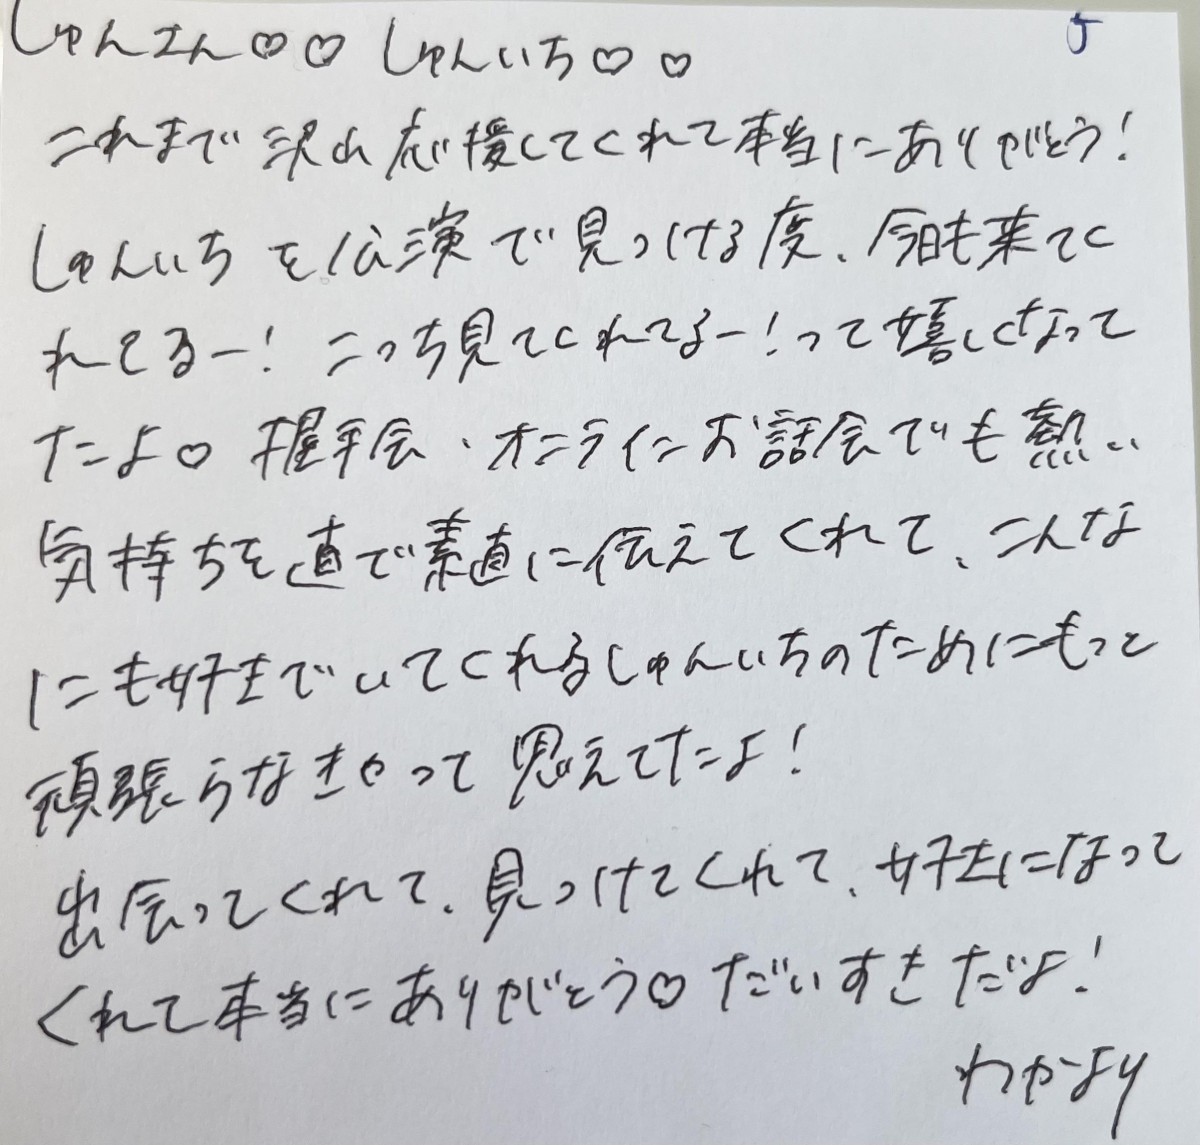 しゅんさん♡♡ しゅんいち♡♡
これまで沢山応援してくれて本当にありがとう!
しゅんいちを公演で見つける度、今日も来てく
れてるー!こっち見てくれてるー!って嬉しくなって
たよ♡ 握手会・オンラインお話会でも熱い
気持ちを直で素直に伝えてくれて、こんな
にも好きでいてくれるしゅんいちのためにもっと
頑張らなきゃって思えてたよ!
出会ってくれて、見つけてくれて、好きになって
くれて本当にありがとう♡だいすきだよ!
わかより